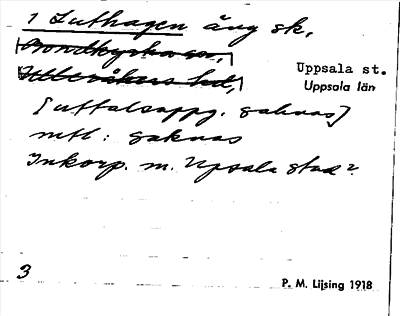 1 Luthagen äng sk.
Bondkyrka sn,
Ulleråkers hd,
Uppsala st.
Uppsala län
[uttalsuppg. saknas]
mtl: saknas
Inkorp. m. Upsala stad?
3
P. M. Lijsing 1918